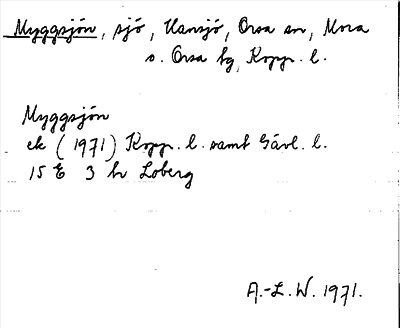 Myggsjön, sjö, Hansjö, Orsa sn, Mora
o. Orsa tg, Kopp. l.
Myggsjön
ek (1971) Kopp. l. samt Gävl. l.
15 E 3 h Loberg
A.-L. W. 1971.